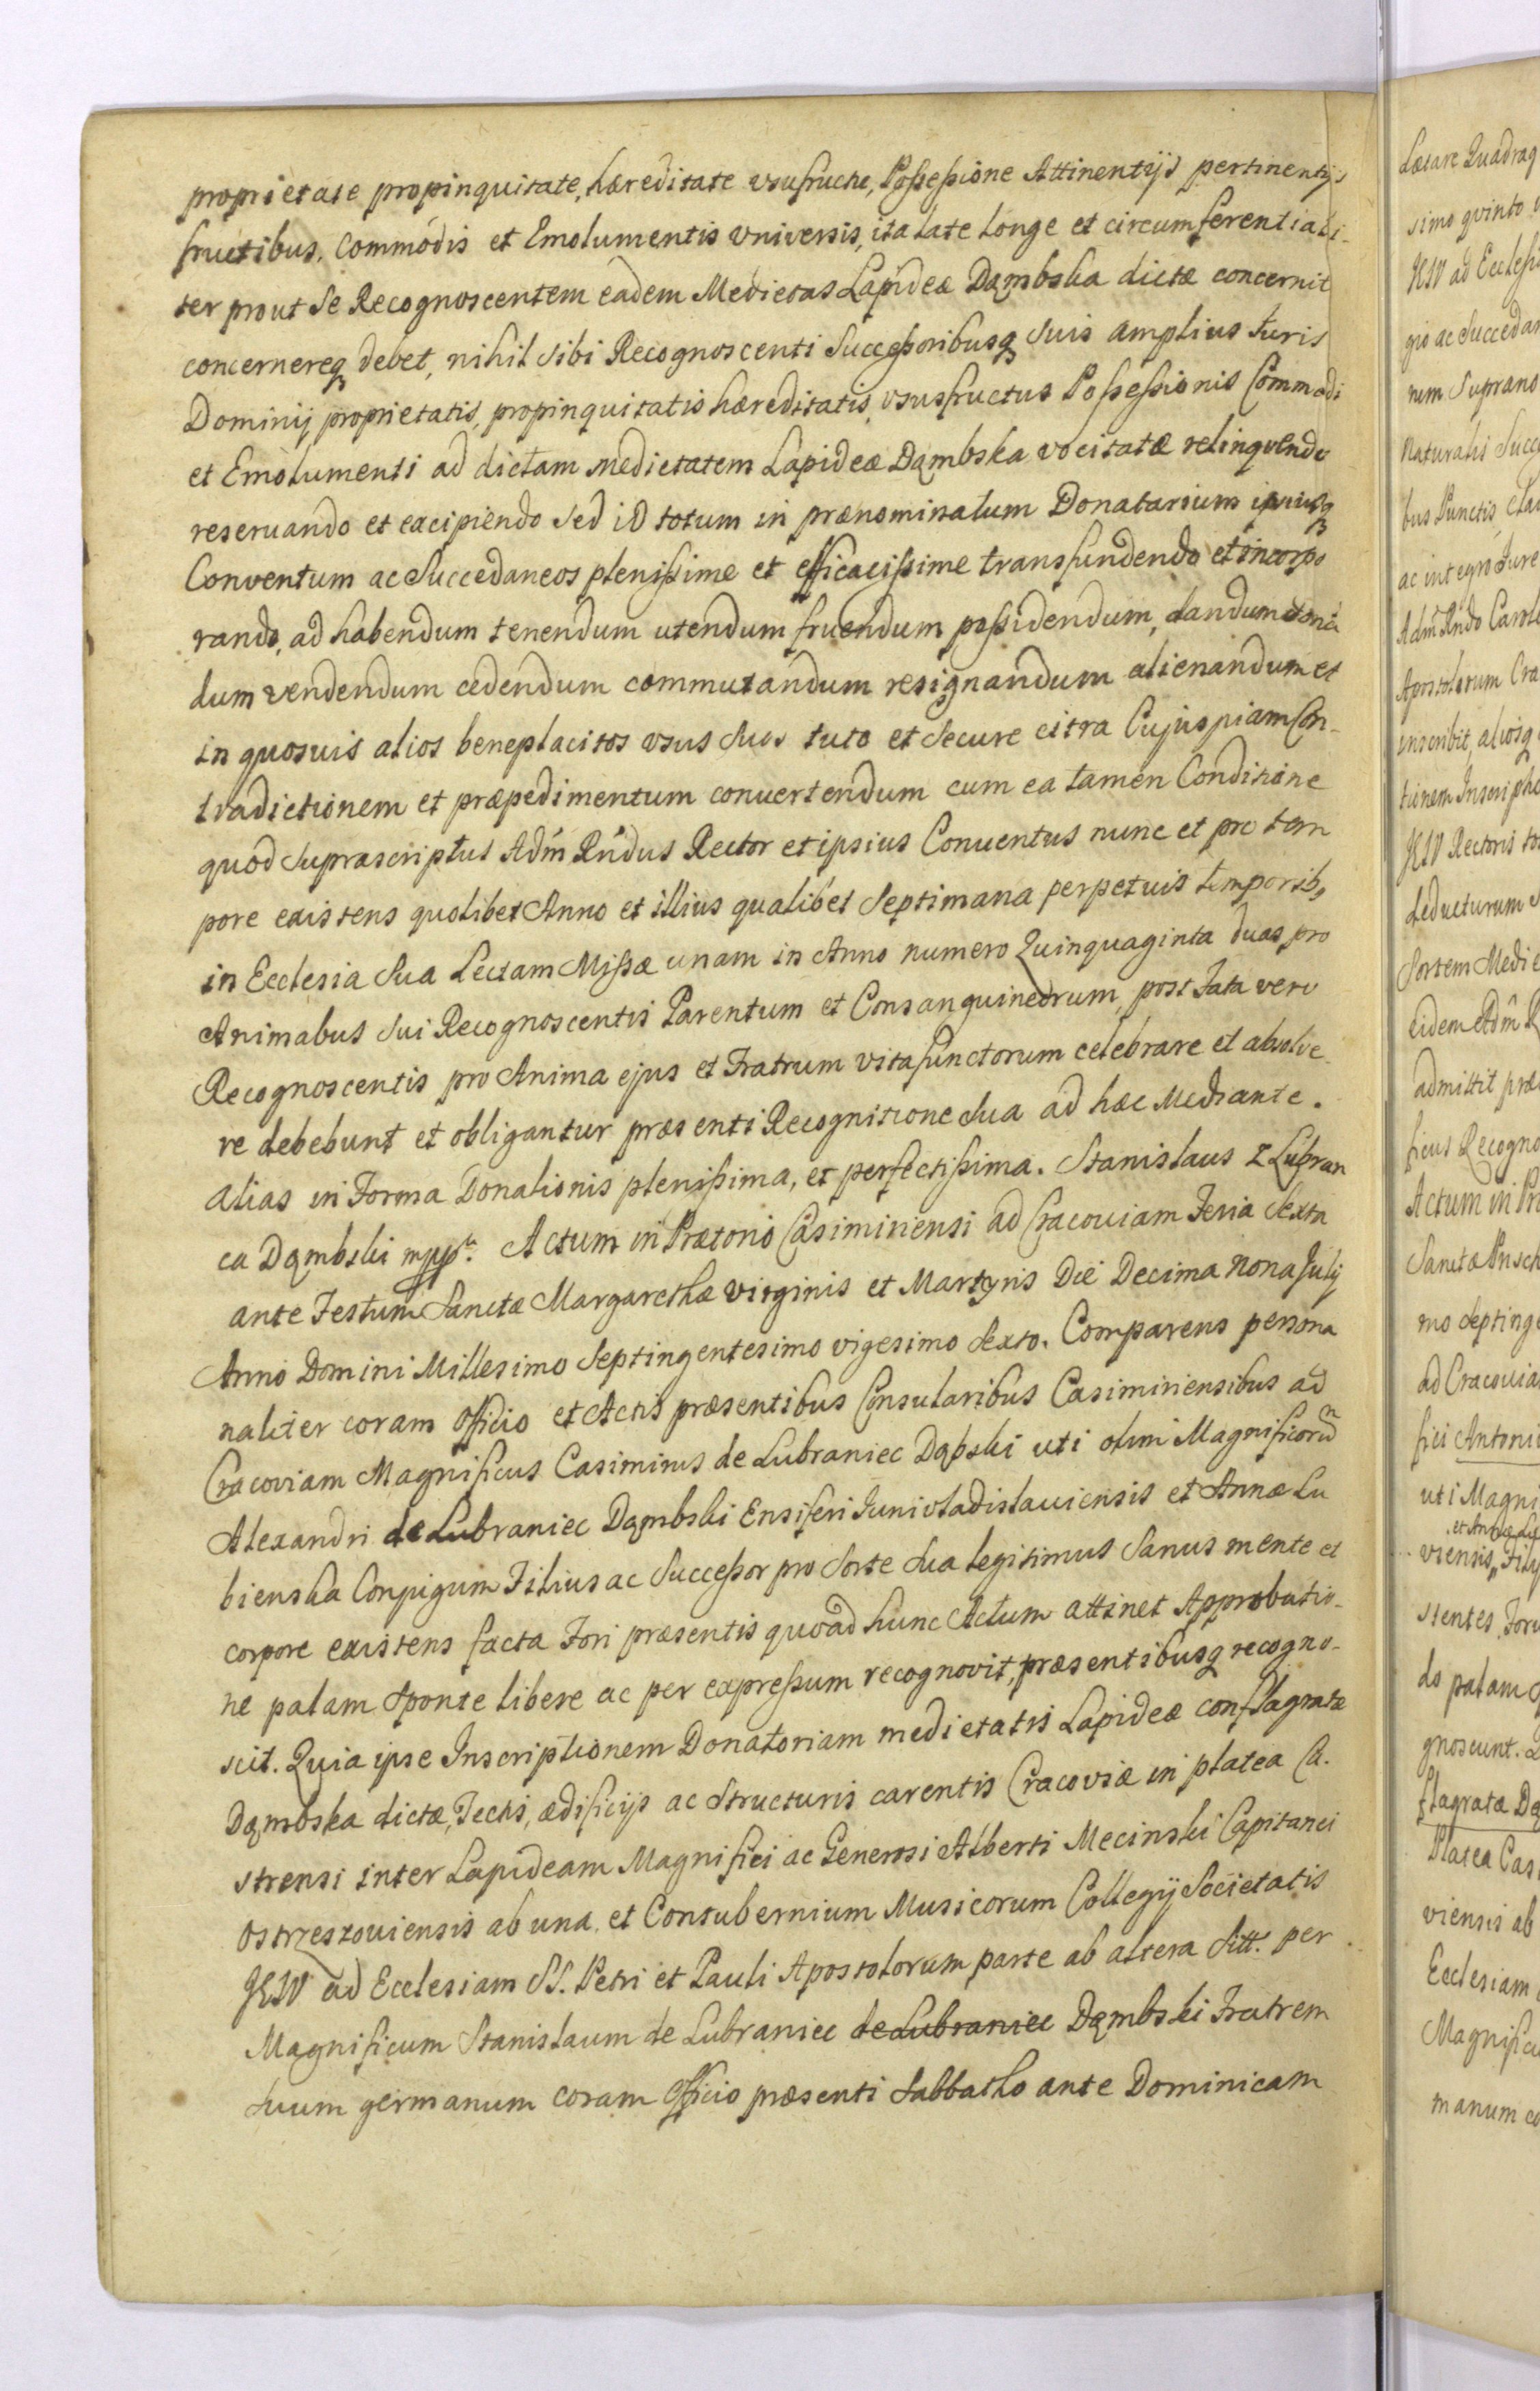 proprietate propinquitate, hæreditate vsufructu, Poßeßione Attinentijs pertinentijs
fructibus, Commodis et Emolumentis vniversis, ita late longe et circumferentiali-
ter prout Se Recognoscentem eadem Medietas Lapideæ Dąmbska dictæ concernit
concernereq3 debet, nihil sibi Recognoscenti Succeßoribusq3 suis amplius Juris
Dominij proprietatis, propinquitatis hæreditatis, vsusfructus Poßeßionis Commodi
et Emolumenti ad dictam Medietatem Lapideæ Dąmbska vocitatæ relinquendo
reseruando et excipiendo sed id totum in prænominatum Donatarium ipsiusq3
Conventum ac Succedaneos plenißime et efficacißime transfundendo et incorpo
rando, ad habendum tenendum utendum fruendum poßidendum, dandum donā
dum vendendum cedendum commutandum resignandum alienandum et
in quosuis alios beneplacitos vsus Suos tuto et Secure citra Cujuspiam Con-
tradictionem et præpedimentum conuertendum cum ea tamen Conditione
quod Suprascriptus Adm̃ Rñdus Rector et ipsius Conuentus nunc et pro tem
pore existens quolibet Anno et illius qualibet Septimana perpetuis temporib9
in Ecclesia Sua Lectam Mißæ unam in Anno numero Quinquaginta duas pro
Animabus Sui Recognoscentis Parentum et Consanguineorum, post Fata vero
Recognoscentis pro Anima ejus et Fratrum vita functorum celebrare et absolve
re debebunt et obligantur præsenti Recognitione Sua ad hæc Mediante.
alias in Forma Donationis plenißima, et perfectißima. Stanislaus z Lubran
ca Dąmbski mpp. Actum in Prætorio Casimiriensi ad Cracouiam Feria Sexta
ante Festum Sanctæ Margarethæ virginis et Martyris Die Decima nona Julij
Anno Domini Millesimo Septingentesimo vigesimo Sexto. Comparens persona
naliter coram Officio et Actis præsentibus Consularibus Casimiriensibus ad
Cracoviam Magnificus Casimirus de Lubraniec Dąbski uti olim Magnificorū
Alexandri de Lubraniec Dąmbski Ensiferi Junivladislauiensis et Annæ Lu
bienska Conjugum Filius ac Succeßor pro Sorte Sua legitimus Sanus mente et
corpore existens facta Fori præsentis quoad hunc Actum attinet Approbatio-
ne palam Sponte libere ac per expreßum recognovit, præsentibusq3 recogno-
scit. Quia ipse Inscriptionem Donatoriam medietatis Lapideæ conflagratæ
Dąmbska dictæ, Tectis, ædificijs ac Structuris carentis Cracoviæ in platea Ca-
strensi inter Lapideam Magnifici ac Generosi Alberti Mecinski Capitanei
Ostrzeszouiensis ab una et Contubernium Musicorum Collegij Societatis
JESV ad Ecclesiam SS. Petri et Pauli Apostolorum parte ab altera Sitt. per
Magnificum Stanislaum de Lubraniec de Lubraniec Dąmbski Fratrem
Suum germanum coram Officio præsenti Sabbatho ante Dominicam
Lætare Quadrag
simo qvinto
JESV ad Ecclesi
gio ac Succeda
num Suprano
Naturalis Succ
bus Punctis, Clau
ac integro Jure
Adm̃ Rndo Carol
Apostolorum Cra
inscribit, aliosq
tionem Inscriptio
JESV Rectoris to
deducturum
Sortem Medie
eidem Adm̃ R
admittit præ
ficus Recogno
Actum in Pr
Sanctæ Prisc
mo Septinge
ad Cracouia
fici Antoni
uti Magni
et Annæ Lu
viensis, Filij
stentes, Fori
do palam
gnoscunt.
flagratæ Dą
Platea Cas
viensis ab
Ecclesiam
Magnificu
manum co